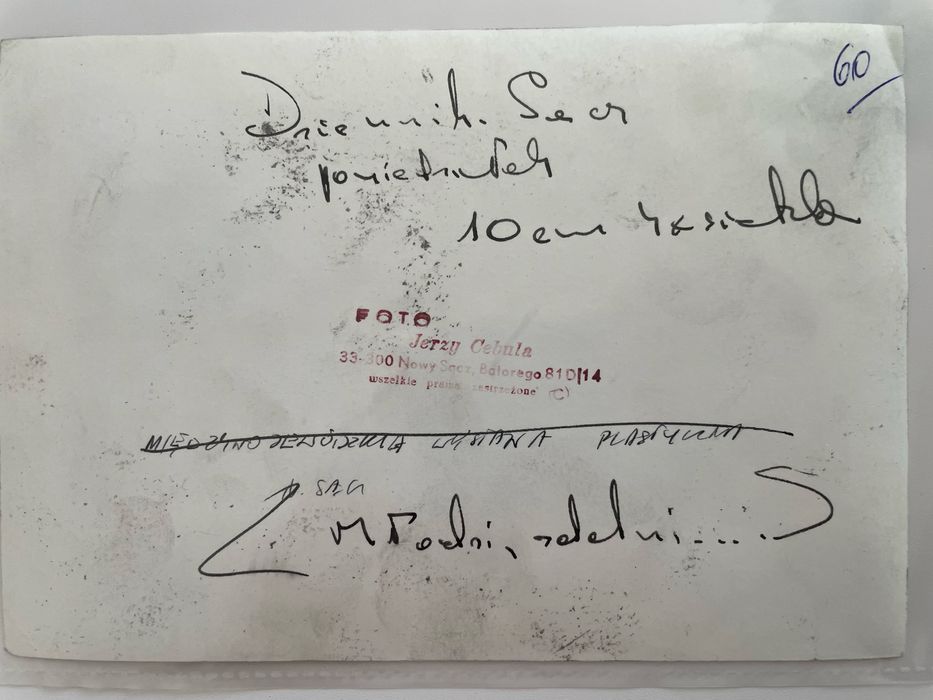 60
Dziennik. Sącz
poniedziałek
10 cm
FOTO
Jerzy Cebula
33-300 Nowy Sącz, Batorego 81D|14
wszelkie prawa zastrzeżone (C)
MIĘDZYWOJEWÓDZKA WYSTAWA PLASTYCZNA
Młodzi, zdolni....